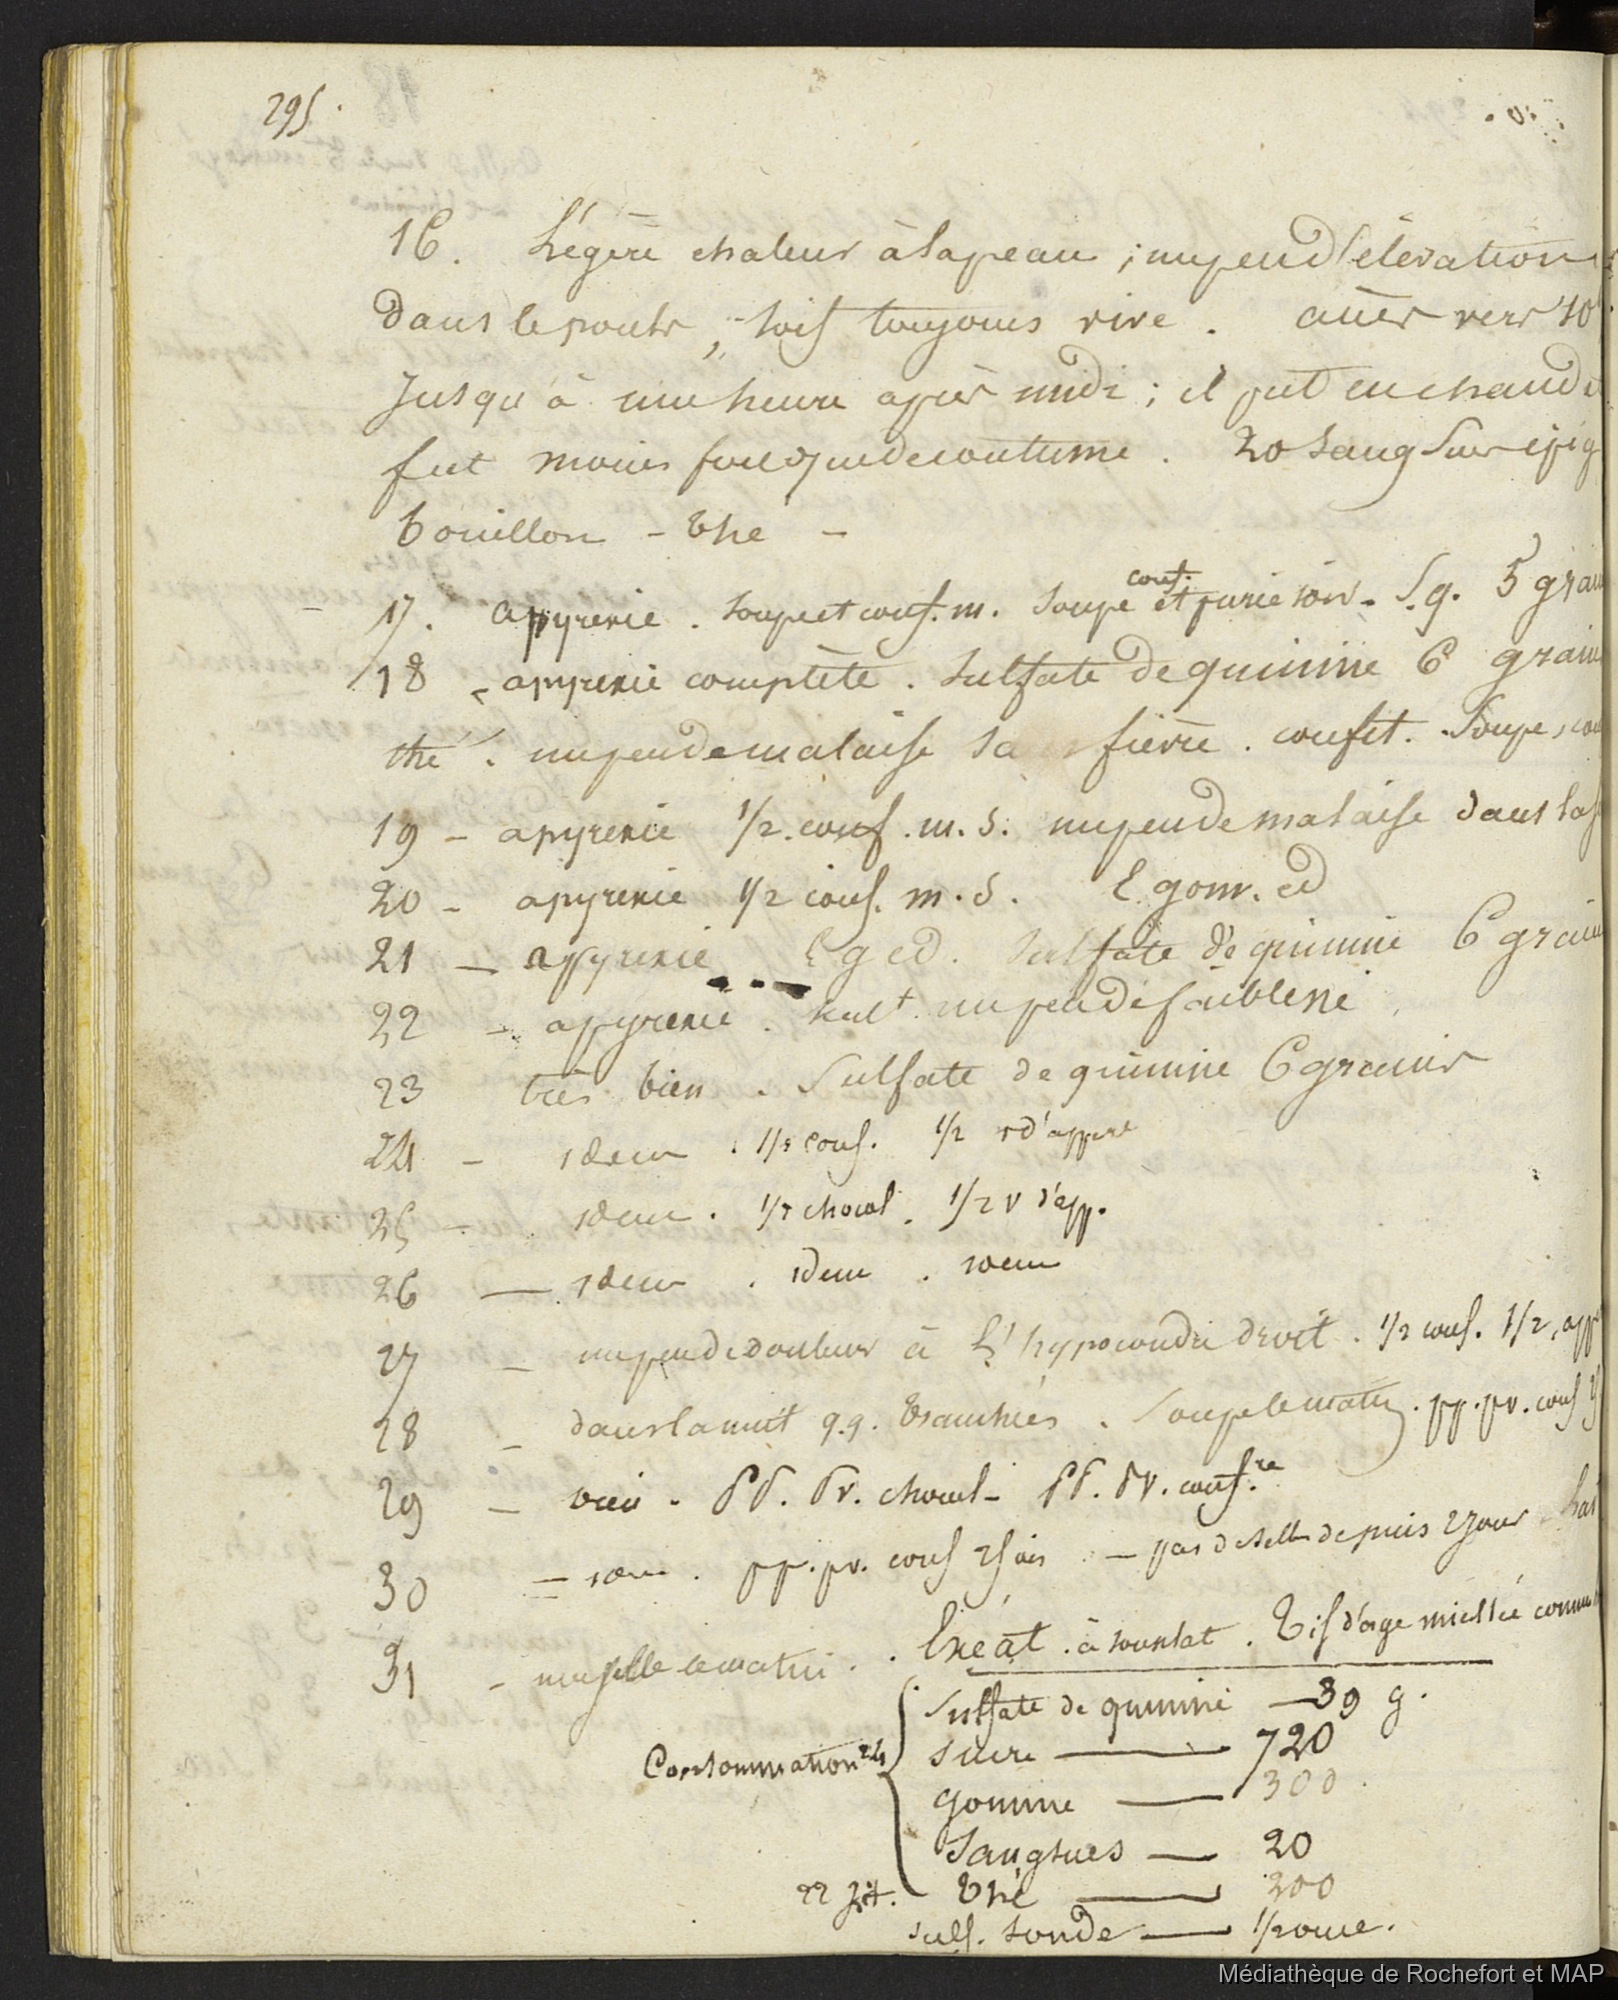 295.
16. Légère chaleur à la peau ; un peu d'élévation
dans le pouls, soif toujours vive. accès vers 10
Jusqu'à une heure après midi ; il fut en chaud
fut moins fort que de coutume. 20 sangsues épig
bouillon - thé -
17. apyrexie. soupe et conf. m. soupe conf. et soir - S.q. 5 grains
18 - apyrexie complète. sulfate de quinine 6 grains
thé. un peu de malaise sans fièvre. confit. Soupe,
19 - apyrexie 1/2 conf. m. s. un peu de malaise dans la
20 - apyrexie 1/2 conf. m. s. E. gom. ed
21 - apyrexie E g ed. sulfate de quinine 6 grains
22 - apyrexie. un peu de faiblesse
23 très bien. Sulfate de quinine 6 grains
24 - idem. 1/2 conf. 1/2
25 - idem. 1/2 chocol. 1/2 v d'app.
26 - idem. idem. idem
27 - un peu de douleur à l'hypocondre droit. 1/2 conf. 1/2, app
28 - dans la nuit q.q. tranchées. Soupe le matin. pp. pv. conf
29 - bien. pp. pv. chocol - pp. pv. conf.re
30 - idem. pp. pv. conf 2 fois - pas de selle depuis 2 jours
31 - une selle ce matin. Exéat. à Tis d'orge miellée commune
Consommation
Sulfate de quinine - 39 g.
sucre - 720
gomme - 300
Sangsues - 20
22 jrt. Thé - 200
sulf. soude - 1/2 once.
Médiathèque de Rochefort et MAP